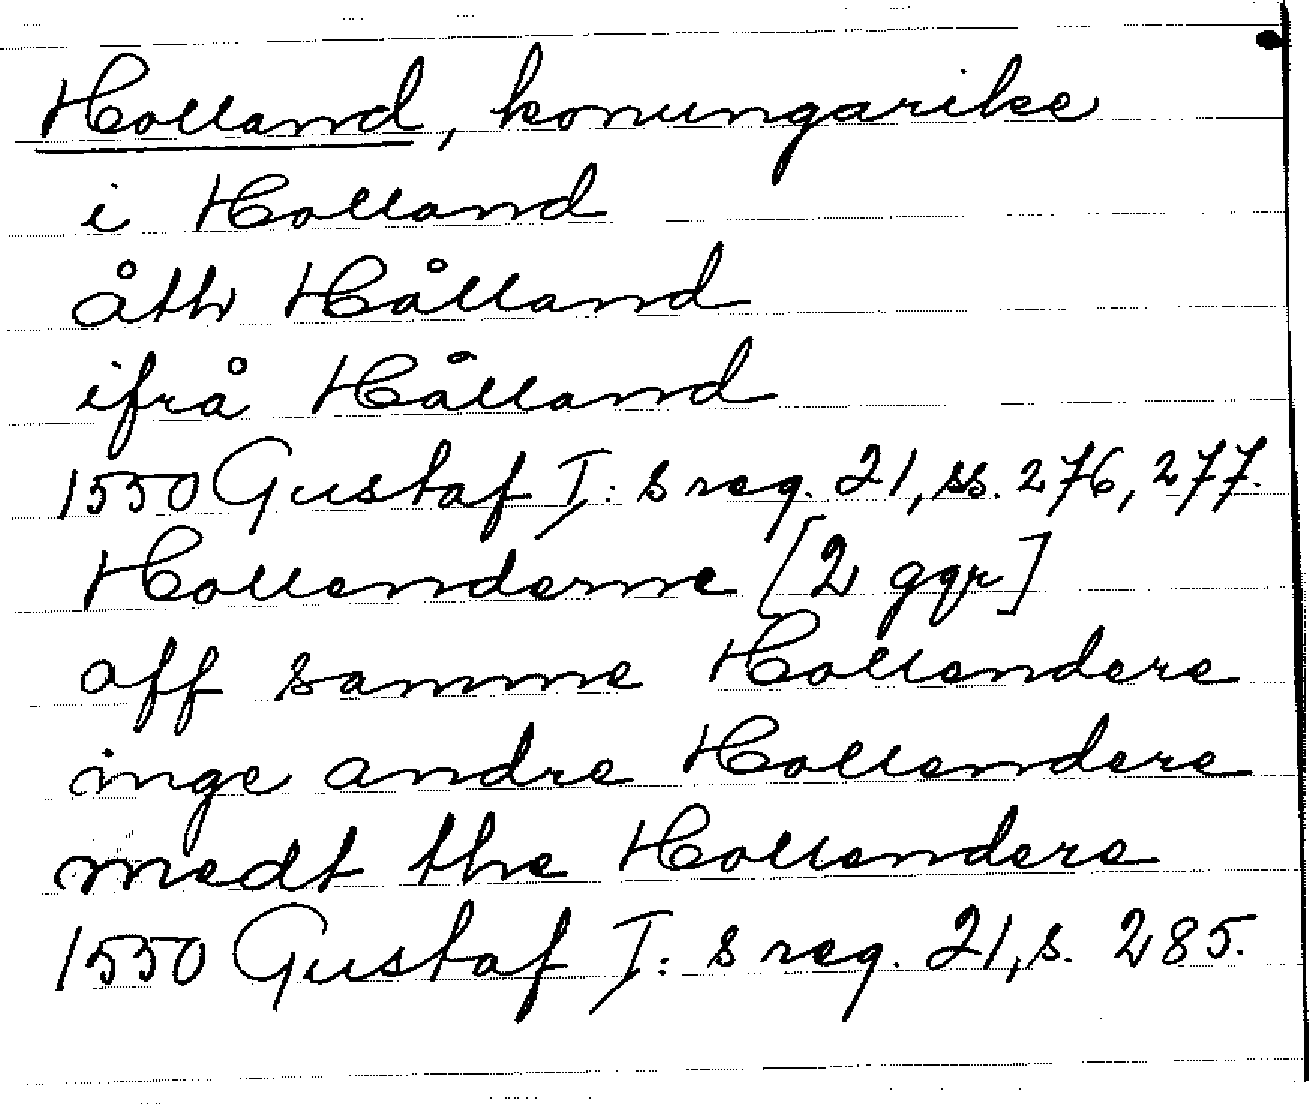 Holland, konungarike
i Holland
åth Hålland
ifrå Hålland
1550 Gustaf I: s reg. 21, ss. 276, 277.
Hollenderne [2 ggr]
aff samme Hollendere
inge andre Hollendere
medt the Hollendere
1550 Gustaf I: s reg. 21, s. 285.